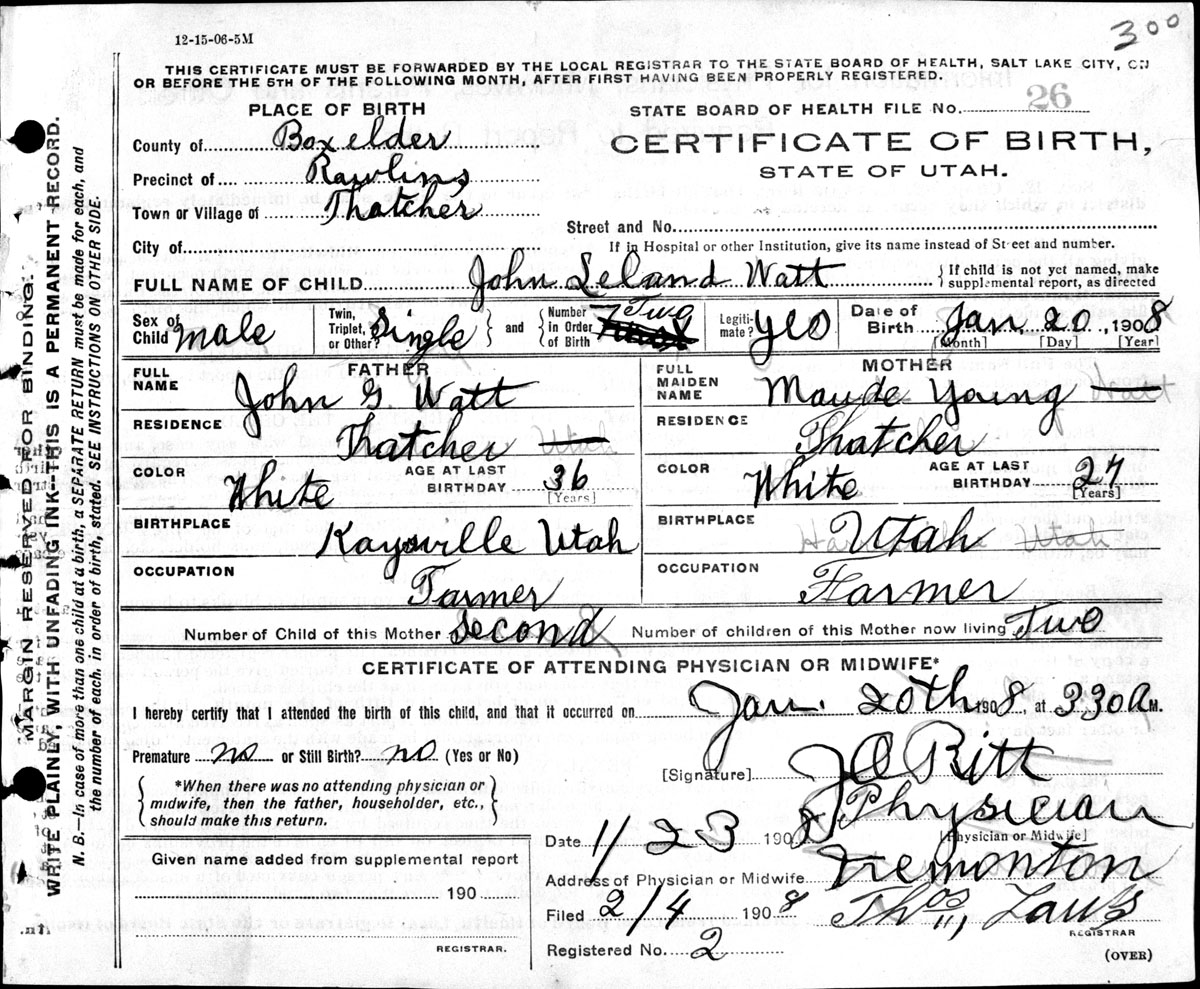 12-15-06-5M
300
THIS CERTIFICATE MUST BE FORWARDED BY THE LOCAL REGISTRAR TO THE STATE BOARD OF HEALTH, SALT LAKE CITY, ON
OR BEFORE THE 5TH OF THE FOLLOWING MONTH, AFTER FIRST HAVING BEEN PROPERLY REGISTERED.
PLACE OF BIRTH
STATE BOARD OF HEALTH FILE NO. 26
County of Boxelder
CERTIFICATE OF BIRTH,
STATE OF UTAH.
Precinct of Rawlins
Town or Village of Thatcher
Street and No.
City of
If in Hospital or other Institution, give its name instead of Street and number.
FULL NAME OF CHILD John Leland Watt
If child is not yet named, make supplemental report, as directed
Sex of Child male
Twin, Triplet, or Other? Single
and
Number in Order of Birth Two
Legitimate? yes
Date of Birth Jan 20, 1908
[Month] [Day] [Year]
FATHER
FULL NAME John G. Watt
RESIDENCE Thatcher Utah
COLOR White
AGE AT LAST BIRTHDAY 36 [Years]
BIRTHPLACE Kaysville Utah
OCCUPATION Farmer
MOTHER
FULL MAIDEN NAME Maude Young Watt
RESIDENCE Thatcher
COLOR White
AGE AT LAST BIRTHDAY 27 [Years]
BIRTHPLACE Utah Utah
OCCUPATION Farmer
Number of Child of this Mother Second
Number of children of this Mother now living Two
CERTIFICATE OF ATTENDING PHYSICIAN OR MIDWIFE*
I hereby certify that I attended the birth of this child, and that it occurred on Jan. 20th 1908, at 330 A M.
Premature no or Still Birth? no (Yes or No)
*When there was no attending physician or
midwife, then the father, householder, etc.,
should make this return.
[Signature]
Physician
[Physician or Midwife]
Date 1/23 1908
Address of Physician or Midwife Tremonton
Given name added from supplemental report
190
REGISTRAR.
Filed 2/4 1908
Thos
REGISTRAR
Registered No. 2
(OVER)
MARGIN RESERVED FOR BINDING.
WRITE PLAINLY, WITH UNFADING INK--THIS IS A PERMANENT RECORD.
N. B.—In case of more than one child at a birth, a SEPARATE RETURN must be made for each, and
the number of each, in order of birth, stated. SEE INSTRUCTIONS ON OTHER SIDE.